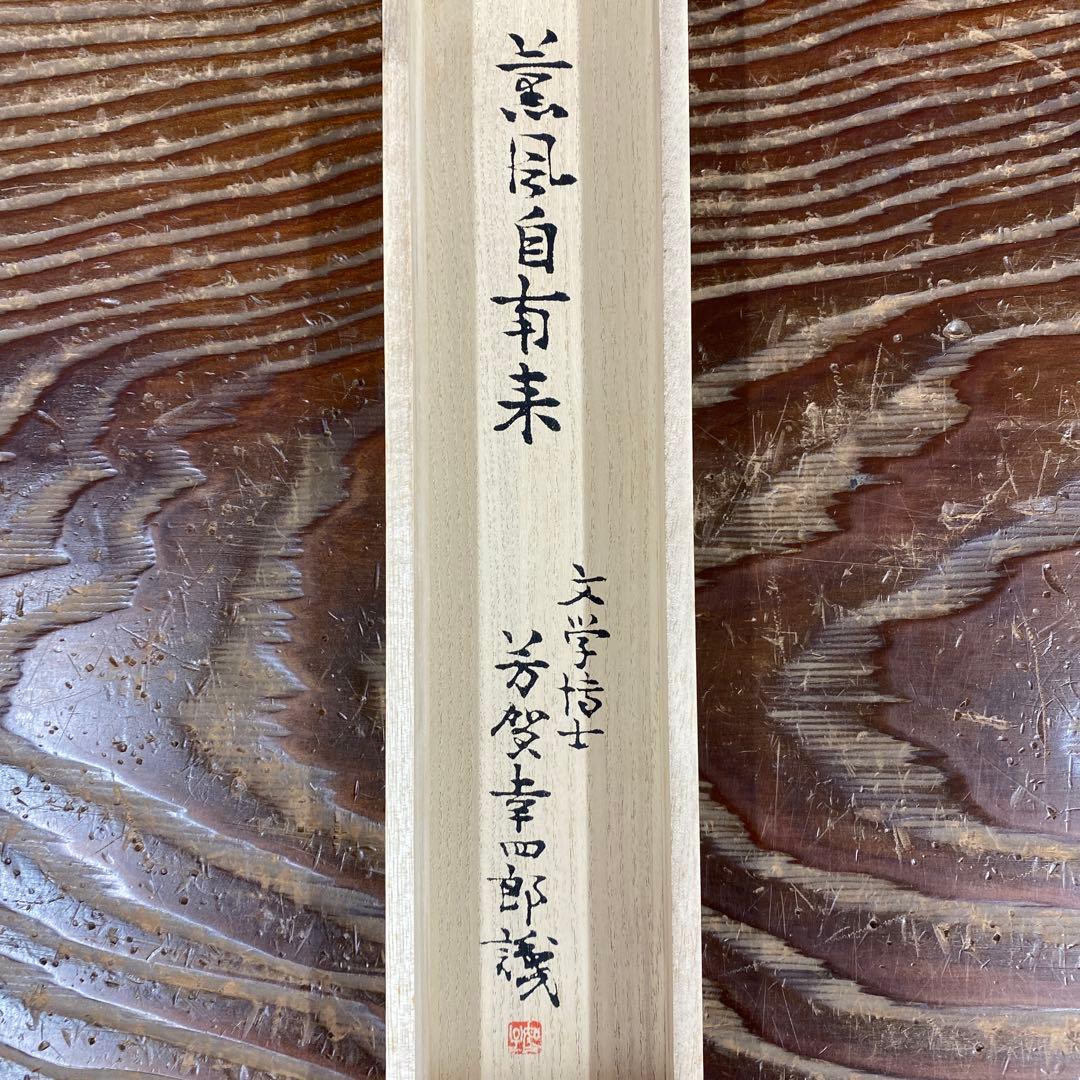 薫風自南来
文学博士
芳賀幸四郎識